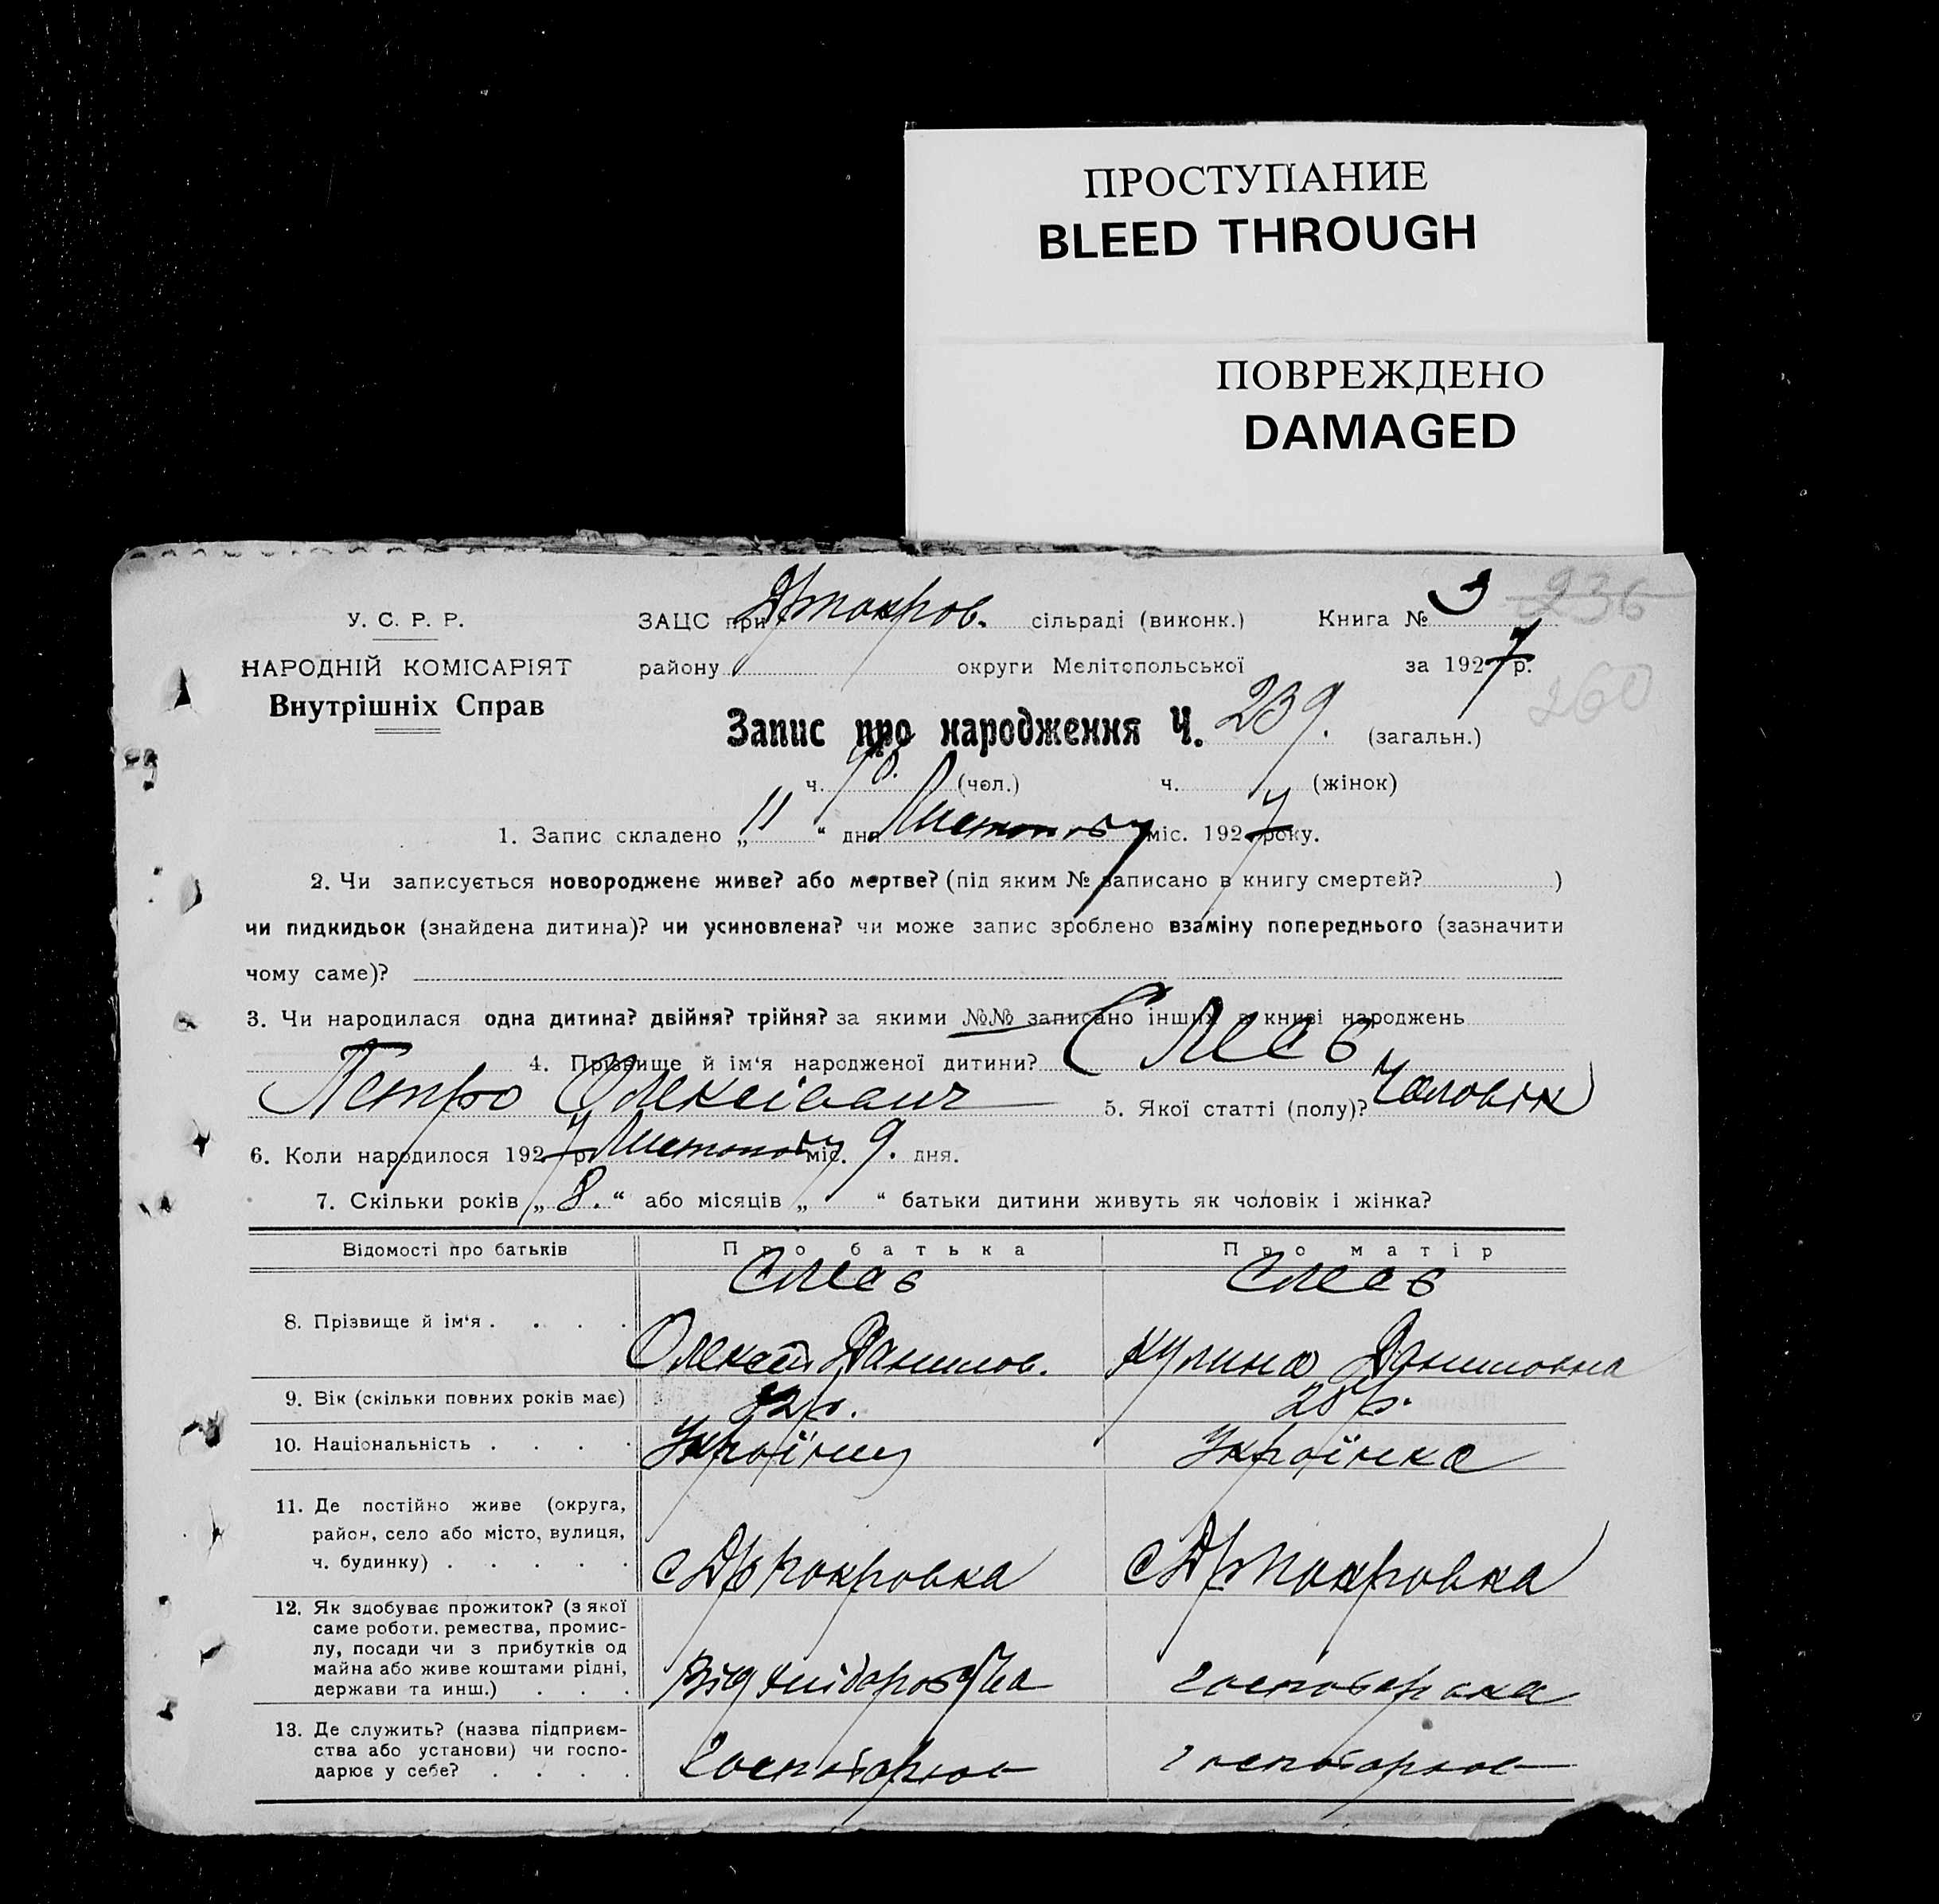 ПРОСТУПАНИЕ
BLEED THROUGH
ПОВРЕЖДЕНО
DAMAGED
У. С. Р. Р.
НАРОДНІЙ КОМІСАРІЯТ
Внутрішніх Справ
ЗАЦС при сільраді (виконк.) Книга № 3 236
району округи Мелітопольської за 1927 р. 260
Запис про народження Ч. 239. (загальн.)
ч. 98. (чол.) ч. (жінок)
1. Запис складено „ 11 “ дня Листопаду міс. 1927 року.
2. Чи записується новороджене живе? або мертве? (під яким № записано в книгу смертей? )
чи пидкидьок (знайдена дитина)? чи усиновлена? чи може запис зроблено взаміну попереднього (зазначити
чому саме)?
3. Чи народилася одна дитина? двійня? трійня? за якими №№ записано інших в книзі народжень
4. Прізвище й ім‘я народженої дитини?
Петро Олексієвич 5. Якої статті (полу)? Чоловік
6. Коли народилося 1927 р. Листопаду міс. 9. дня.
7. Скільки років „ 8. “ або місяців „ “ батьки дитини живуть як чоловік і жінка?
Відомості про батьків Про батька Про матір
8. Прізвище й ім‘я . . . .
Олексій Данилов. Кулина Даниловна
9. Вік (скільки повних років має) 28 р.
10. Національність . . . . Українец Українка
11. Де постійно живе (округа,
район, село або місто, вулиця,
ч. будинку) . . . . .
12. Як здобуває прожиток? (з якої
саме роботи, ремества, промис-
лу, посади чи з прибутків од
майна або живе коштами рідні,
держави та инш.) . . . Від хлібороб
13. Де служить? (назва підприєм-
ства або установи) чи госпо-
дарює у себе? . . . . Господарює Господарює